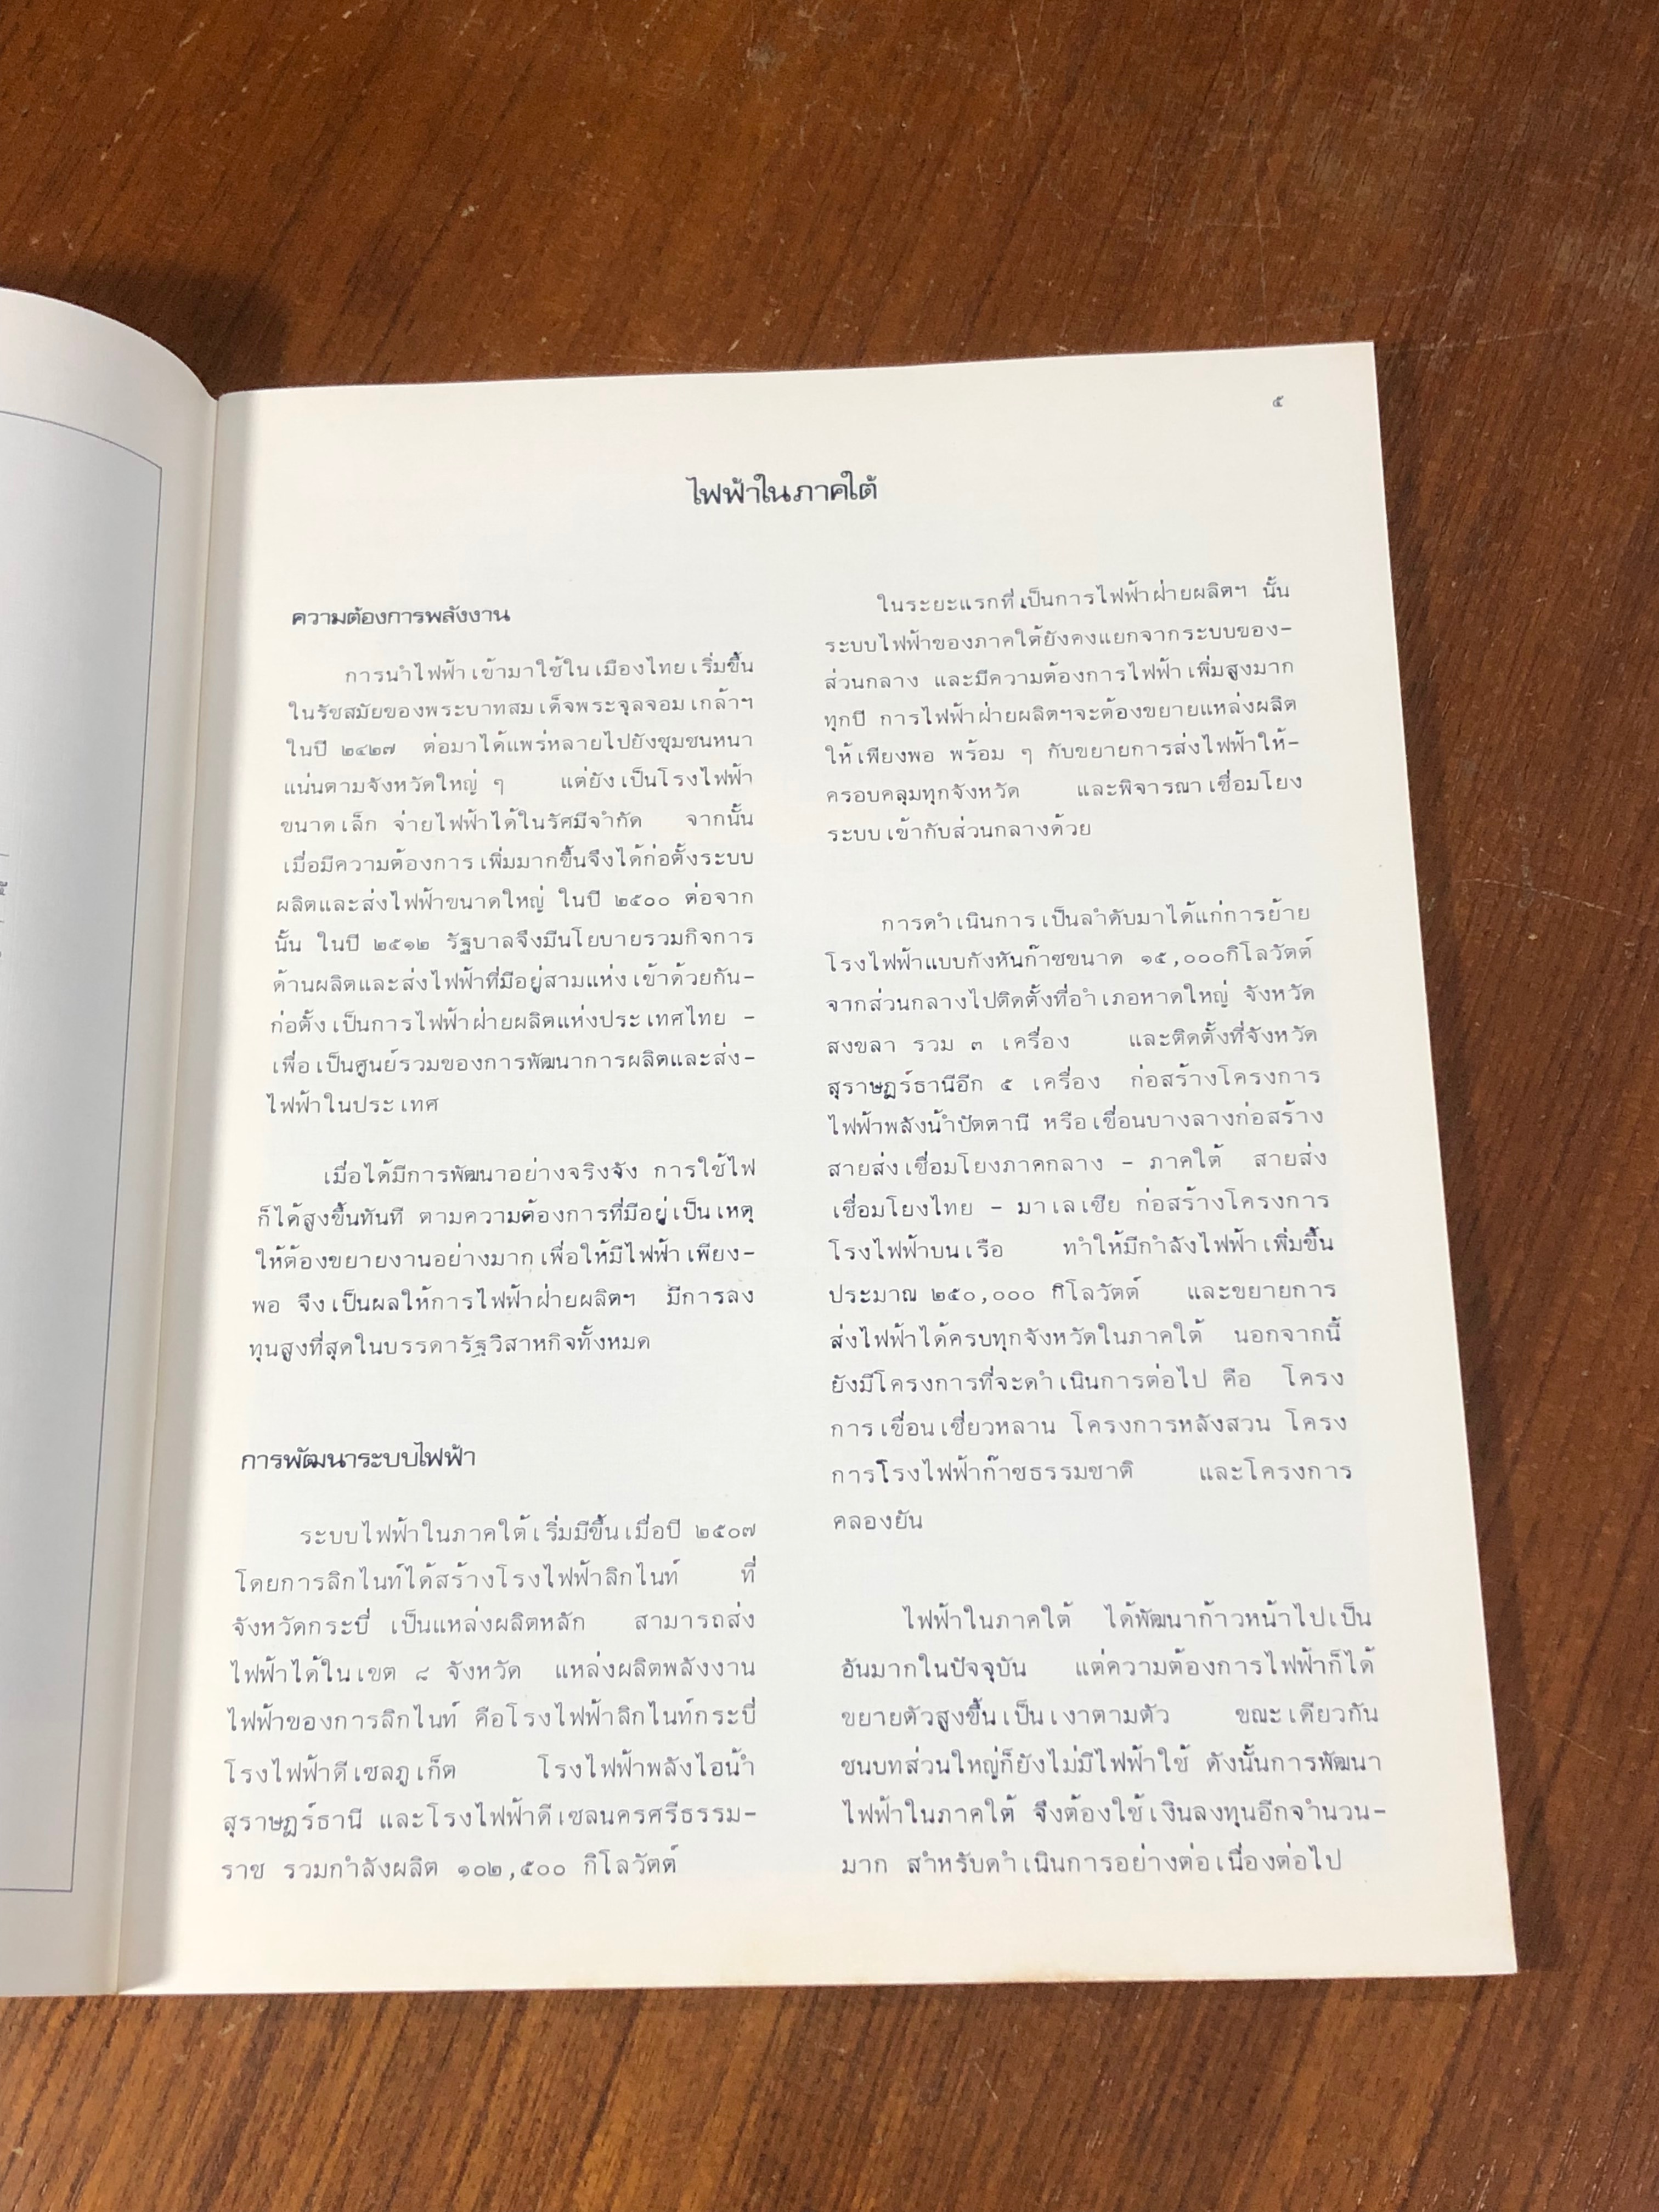 ๕
ไฟฟ้าในภาคใต้
ความต้องการพลังงาน
การนำไฟฟ้าเข้ามาใช้ในเมืองไทยเริ่มขึ้น
ในรัชสมัยของพระบาทสมเด็จพระจุลจอมเกล้าฯ
ในปี ๒๔๒๗ ต่อมาได้แพร่หลายไปยังชุมชนหนา
แน่นตามจังหวัดใหญ่ ๆ แต่ยังเป็นโรงไฟฟ้า
ขนาดเล็ก จ่ายไฟฟ้าได้ในรัศมีจำกัด จากนั้น
เมื่อมีความต้องการเพิ่มมากขึ้นจึงได้ก่อตั้งระบบ
ผลิตและส่งไฟฟ้าขนาดใหญ่ ในปี ๒๕๐๐ ต่อจาก
นั้น ในปี ๒๕๑๒ รัฐบาลจึงมีนโยบายรวมกิจการ
ด้านผลิตและส่งไฟฟ้าที่มีอยู่สามแห่งเข้าด้วยกัน-
ก่อตั้งเป็นการไฟฟ้าฝ่ายผลิตแห่งประเทศไทย -
เพื่อเป็นศูนย์รวมของการพัฒนาการผลิตและส่ง-
ไฟฟ้าในประเทศ
เมื่อได้มีการพัฒนาอย่างจริงจัง การใช้ไฟ
ก็ได้สูงขึ้นทันที ตามความต้องการที่มีอยู่เป็นเหตุ
ให้ต้องขยายงานอย่างมากเพื่อให้มีไฟฟ้าเพียง-
พอ จึงเป็นผลให้การไฟฟ้าฝ่ายผลิตฯ มีการลง
ทุนสูงที่สุดในบรรดารัฐวิสาหกิจทั้งหมด
การพัฒนาระบบไฟฟ้า
ระบบไฟฟ้าในภาคใต้เริ่มมีขึ้นเมื่อปี ๒๕๐๗
โดยการลิกไนท์ได้สร้างโรงไฟฟ้าลิกไนท์ ที่
จังหวัดกระบี่ เป็นแหล่งผลิตหลัก สามารถส่ง
ไฟฟ้าได้ในเขต ๘ จังหวัด แหล่งผลิตพลังงาน
ไฟฟ้าของการลิกไนท์ คือโรงไฟฟ้าลิกไนท์กระบี่
โรงไฟฟ้าดีเซลภูเก็ต โรงไฟฟ้าพลังไอน้ำ
สุราษฎร์ธานี และโรงไฟฟ้าดีเซลนครศรีธรรม-
ราช รวมกำลังผลิต ๑๐๒,๕๐๐ กิโลวัตต์
ในระยะแรกที่เป็นการไฟฟ้าฝ่ายผลิตฯ นั้น
ระบบไฟฟ้าของภาคใต้ยังคงแยกจากระบบของ-
ส่วนกลาง และมีความต้องการไฟฟ้าเพิ่มสูงมาก
ทุกปี การไฟฟ้าฝ่ายผลิตฯจะต้องขยายแหล่งผลิต
ให้เพียงพอ พร้อม ๆ กับขยายการส่งไฟฟ้าให้-
ครอบคลุมทุกจังหวัด และพิจารณาเชื่อมโยง
ระบบเข้ากับส่วนกลางด้วย
การดำเนินการเป็นลำดับมาได้แก่การย้าย
โรงไฟฟ้าแบบกังหันก๊าซขนาด ๑๕,๐๐๐กิโลวัตต์
จากส่วนกลางไปติดตั้งที่อำเภอหาดใหญ่ จังหวัด
สงขลา รวม ๓ เครื่อง และติดตั้งที่จังหวัด
สุราษฎร์ธานีอีก ๕ เครื่อง ก่อสร้างโครงการ
ไฟฟ้าพลังน้ำปัตตานี หรือเขื่อนบางลางก่อสร้าง
สายส่งเชื่อมโยงภาคกลาง - ภาคใต้ สายส่ง
เชื่อมโยงไทย - มาเลเซีย ก่อสร้างโครงการ
โรงไฟฟ้าบนเรือ ทำให้มีกำลังไฟฟ้าเพิ่มขึ้น
ประมาณ ๒๕๐,๐๐๐ กิโลวัตต์ และขยายการ
ส่งไฟฟ้าได้ครบทุกจังหวัดในภาคใต้ นอกจากนี้
ยังมีโครงการที่จะดำเนินการต่อไป คือ โครง
การเขื่อนเชี่ยวหลาน โครงการหลังสวน โครง
การโรงไฟฟ้าก๊าซธรรมชาติ และโครงการ
คลองยัน
ไฟฟ้าในภาคใต้ ได้พัฒนาก้าวหน้าไปเป็น
อันมากในปัจจุบัน แต่ความต้องการไฟฟ้าก็ได้
ขยายตัวสูงขึ้นเป็นเงาตามตัว ขณะเดียวกัน
ชนบทส่วนใหญ่ก็ยังไม่มีไฟฟ้าใช้ ดังนั้นการพัฒนา
ไฟฟ้าในภาคใต้ จึงต้องใช้เงินลงทุนอีกจำนวน-
มาก สำหรับดำเนินการอย่างต่อเนื่องต่อไป